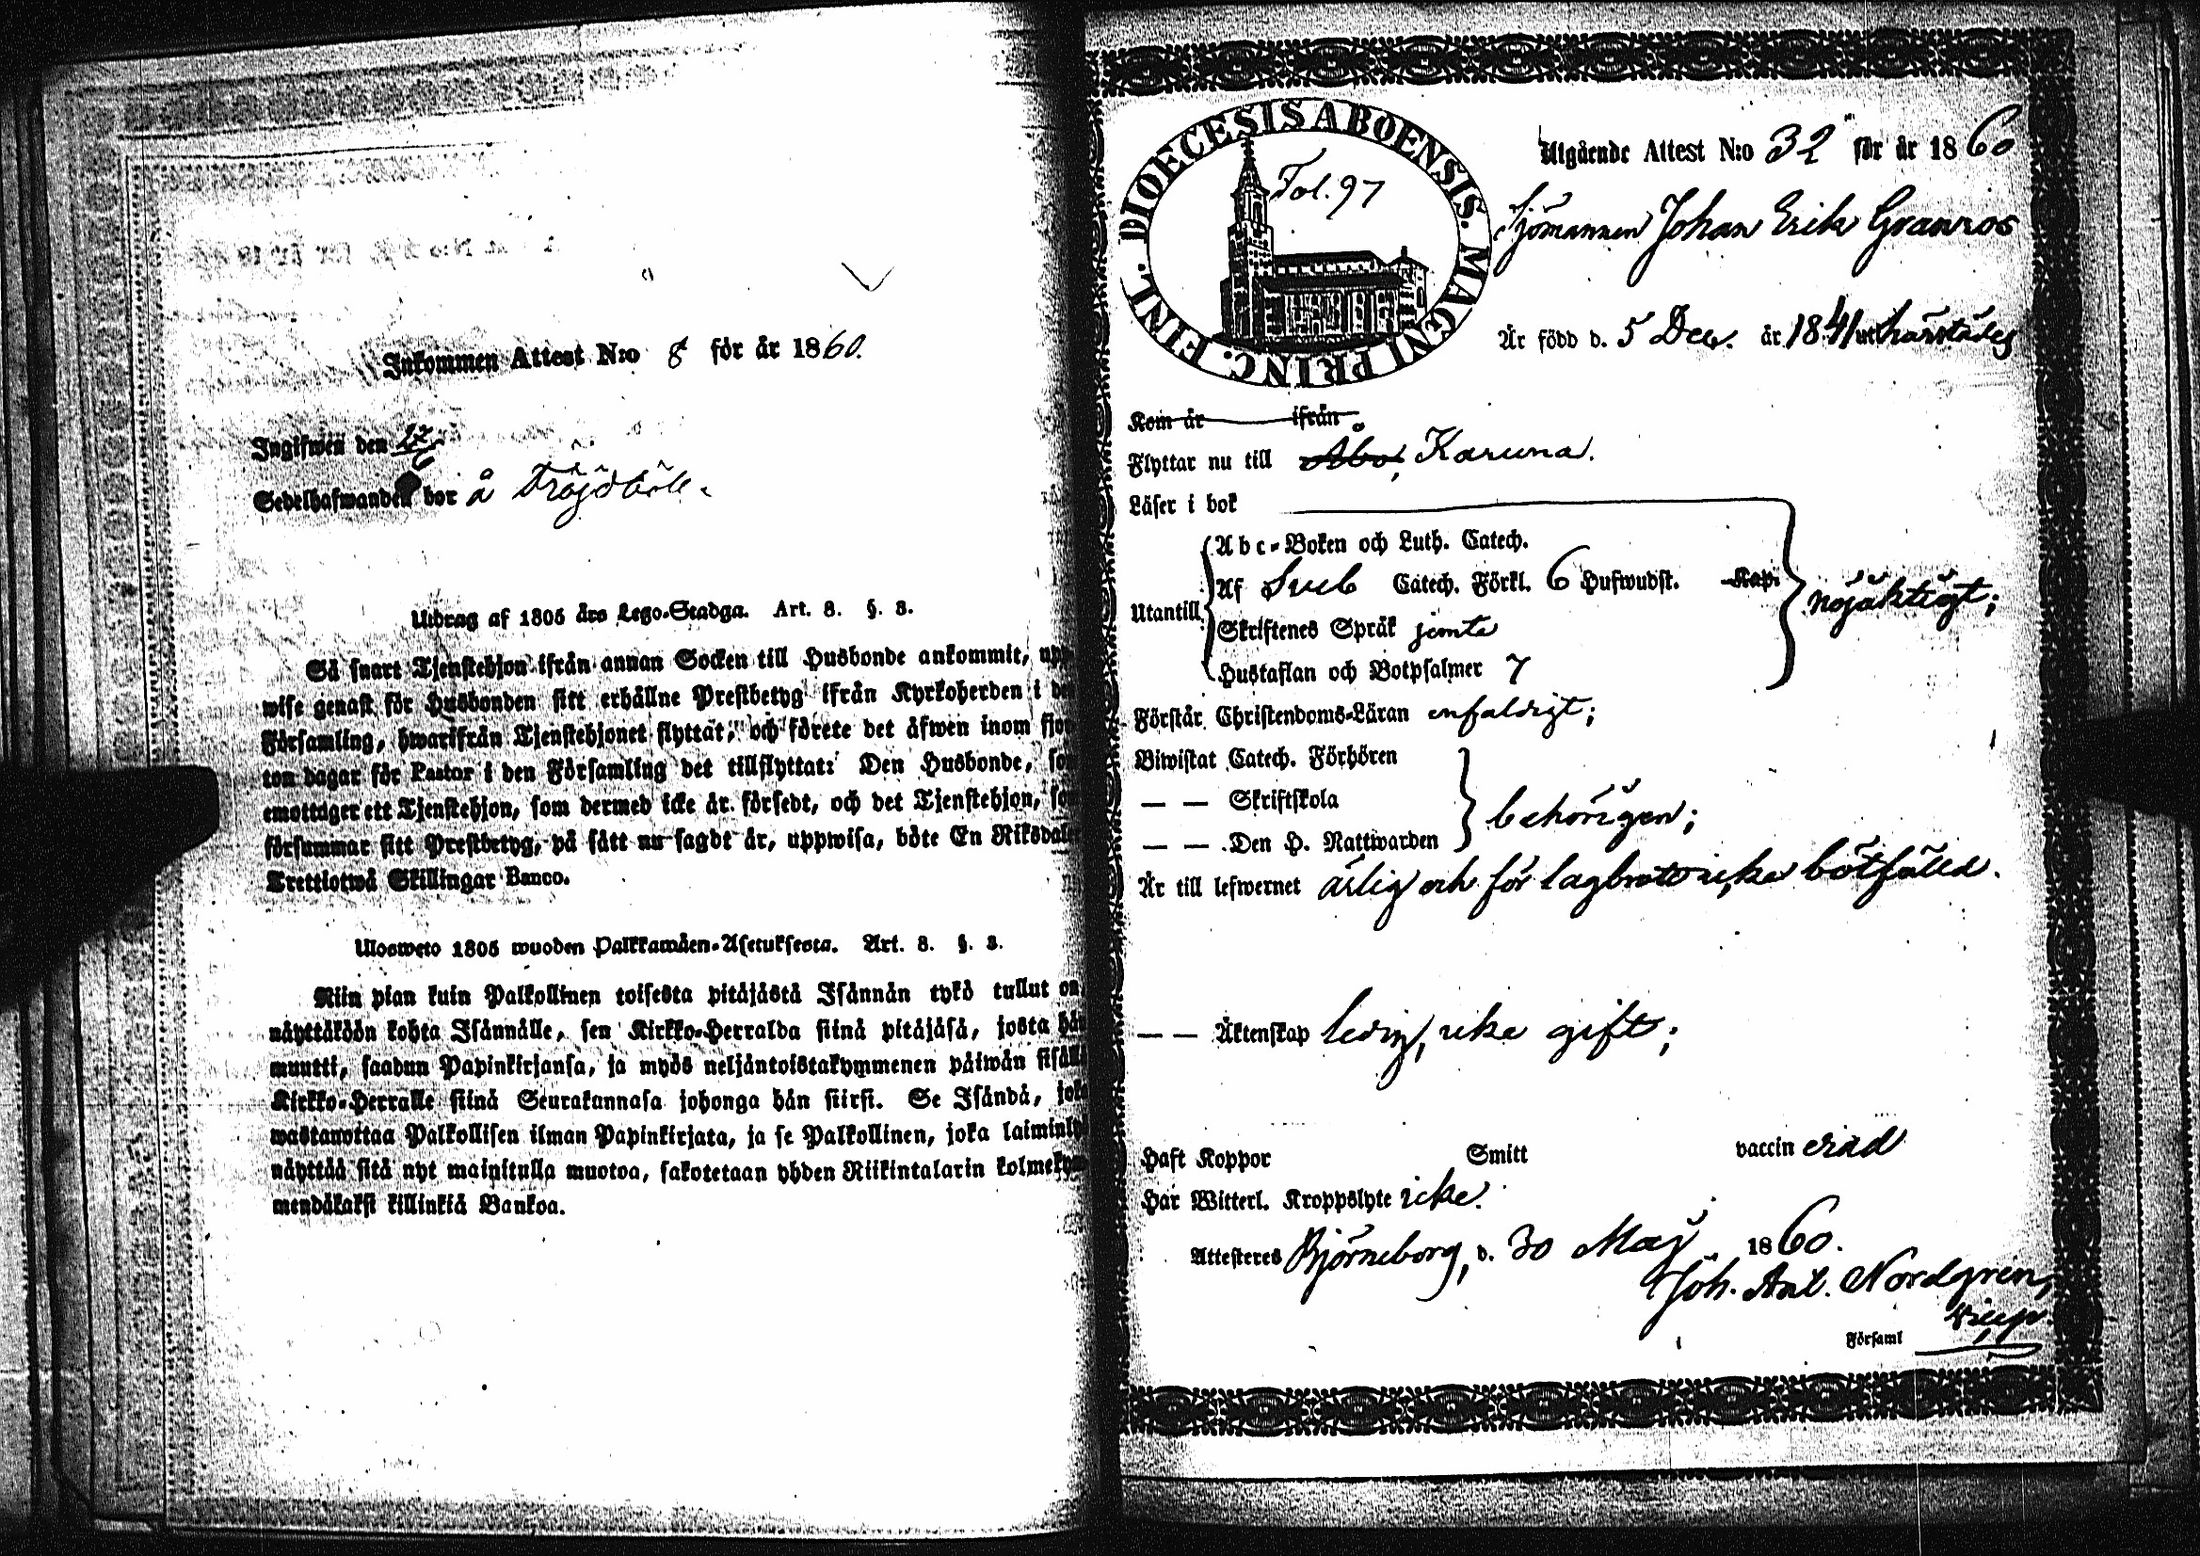 Inkommen Attest N:o 8 för år 1860.
Ingifwen den 27/6
Sedelhafwanden bor å Tröjdböle.
Utdrag af 1805 års Lego-Stadga. Art. 8. §. 3.
Så snart Tjenstehjon ifrån annan Socken till Husbonde ankommit, upp
wise genast för Husbonden sitt erhållne Prestbetyg ifrån Kyrkoherden i de
Församling, hwarifrån Tjenstehjonet flyttat, och förete det äfwen inom fjor
ton dagar för Pastor i den Församling det tillflyttat: Den Husbonde, so
emottager ett Tjenstehjon, som dermed icke är försedt, och det Tjenstehjon, so
försummar sitt Prestbetyg, på sätt nu sagdt är, uppwisa, böte En Riksdaler
Trettiotwå Skillingar Banco.
Ulosweto 1805 wuoden Palkkawäen-Asetuksesta. Art. 8. §. 3.
Niin pian kuin Palkollinen toisesta pitäjästä Isännän tykö tullut on
näyttäköön kohta Isännälle, sen Kirkko-Herralda siinä pitäjäsä, josta hän
muutti, saadun Papinkirjansa, ja myös neljäntoistakymmenen päiwän sisälle
Kirkko-Herralle siinä Seurakannasa johonga hän siirsi. Se Isändä, joka
wastanottaa Palkollisen ilman Papinkirjata, ja se Palkollinen, joka laiminly
näyttää sitä nyt mainitulla muotoa, sakotetaan yhden Riikintalarin kolmekym
mendäkaksi killinkiä Bankoa.
FINL. DIOECESIS ABOENSIS. MAGNI PRINC.
Fol. 97
Utgående Attest N:o 32 för år 1860
Sjömannen Johan Erik Granroos
Är född d. 5 Dec. år 1841 uti härstädes
Kom år ifrån
Flyttar nu till Åbo, Karuna.
Läser i bok
Abc-Boken och Luth. Catech.
Utantill Af Sveb Catech. Förkl. 6 Hufwudst. Kap. nöjaktigt;
Skriftenes Språk jemte
Hustaflan och Botpsalmer 7
Förstår Christendoms-Läran enfaldigt;
Biwistat Catech. Förhören
— — Skriftskola behörigen;
— — Den H. Nattwarden
Är till lefwernet ärlig och för lagbrott icke bötfälld.
— — Äktenskap ledig, icke gift;
Haft Koppor Smitt vaccin erad
Har Witterl. Kroppslyte icke.
Attesteres Björneborg, d. 30 Maj 1860.
Joh. Ant. Nordgren,
Församl